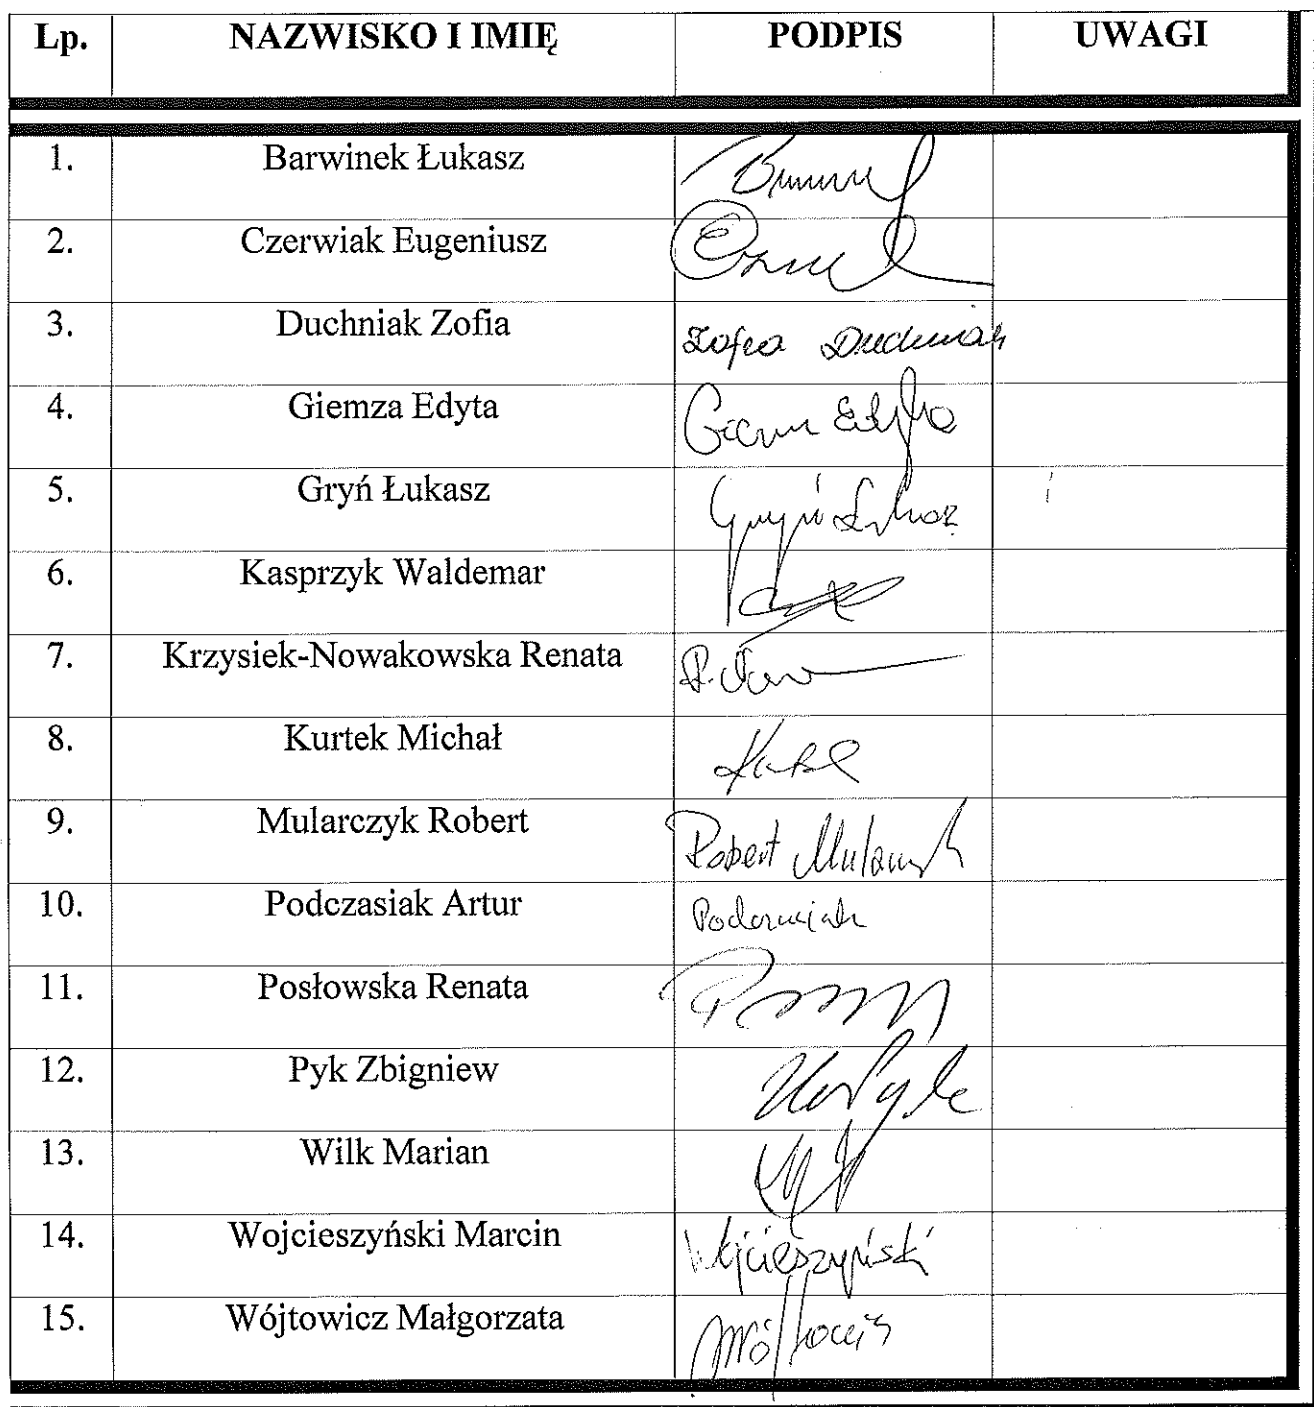 Lp. NAZWISKO I IMIĘ PODPIS UWAGI
1. Barwinek Łukasz
2. Czerwiak Eugeniusz
3. Duchniak Zofia Zofia Duchniak
4. Giemza Edyta Edyta
5. Gryń Łukasz Gryń Łukasz
6. Kasprzyk Waldemar
7. Krzysiek-Nowakowska Renata
8. Kurtek Michał
9. Mularczyk Robert Robert Mularczyk
10. Podczasiak Artur Podczasiak
11. Posłowska Renata
12. Pyk Zbigniew Pyk
13. Wilk Marian
14. Wojcieszyński Marcin Wojcieszyński
15. Wójtowicz Małgorzata MWójtowicz